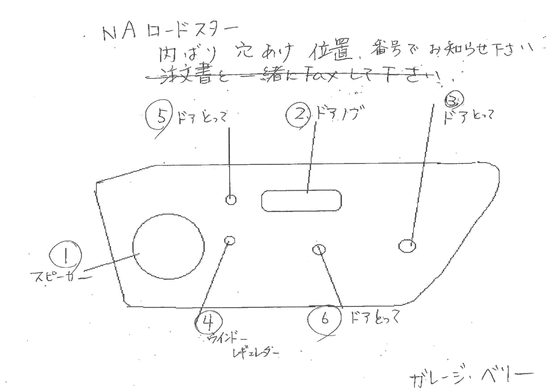 NA ロードスター
内ばり 穴あけ 位置、番号でお知らせ下さい
注文書と一緒にFaxして下さい。
⑤ ドアとって
② ドアノブ
③ ドアとって
① スピーカー
④ ウインドー
レギュレーダー
⑥ ドアとって
ガレージ・ベリー